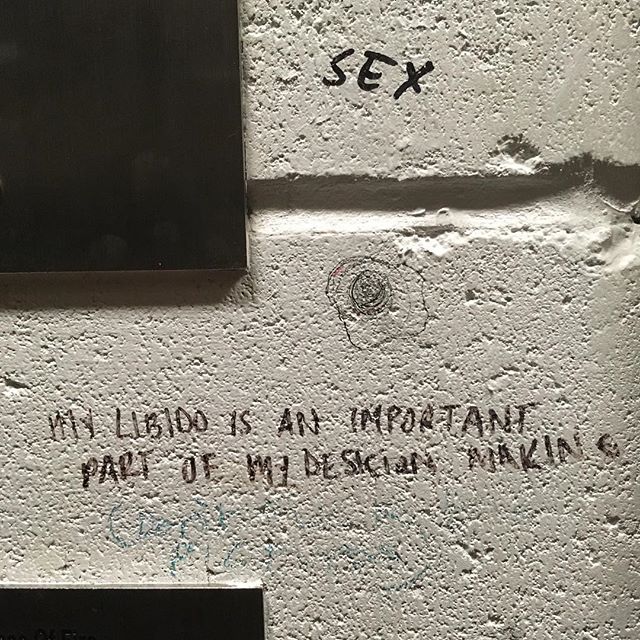 SEX
MY LIBIDO IS AN IMPORTANT
PART OF MY DESICION MAKING
Of Fire